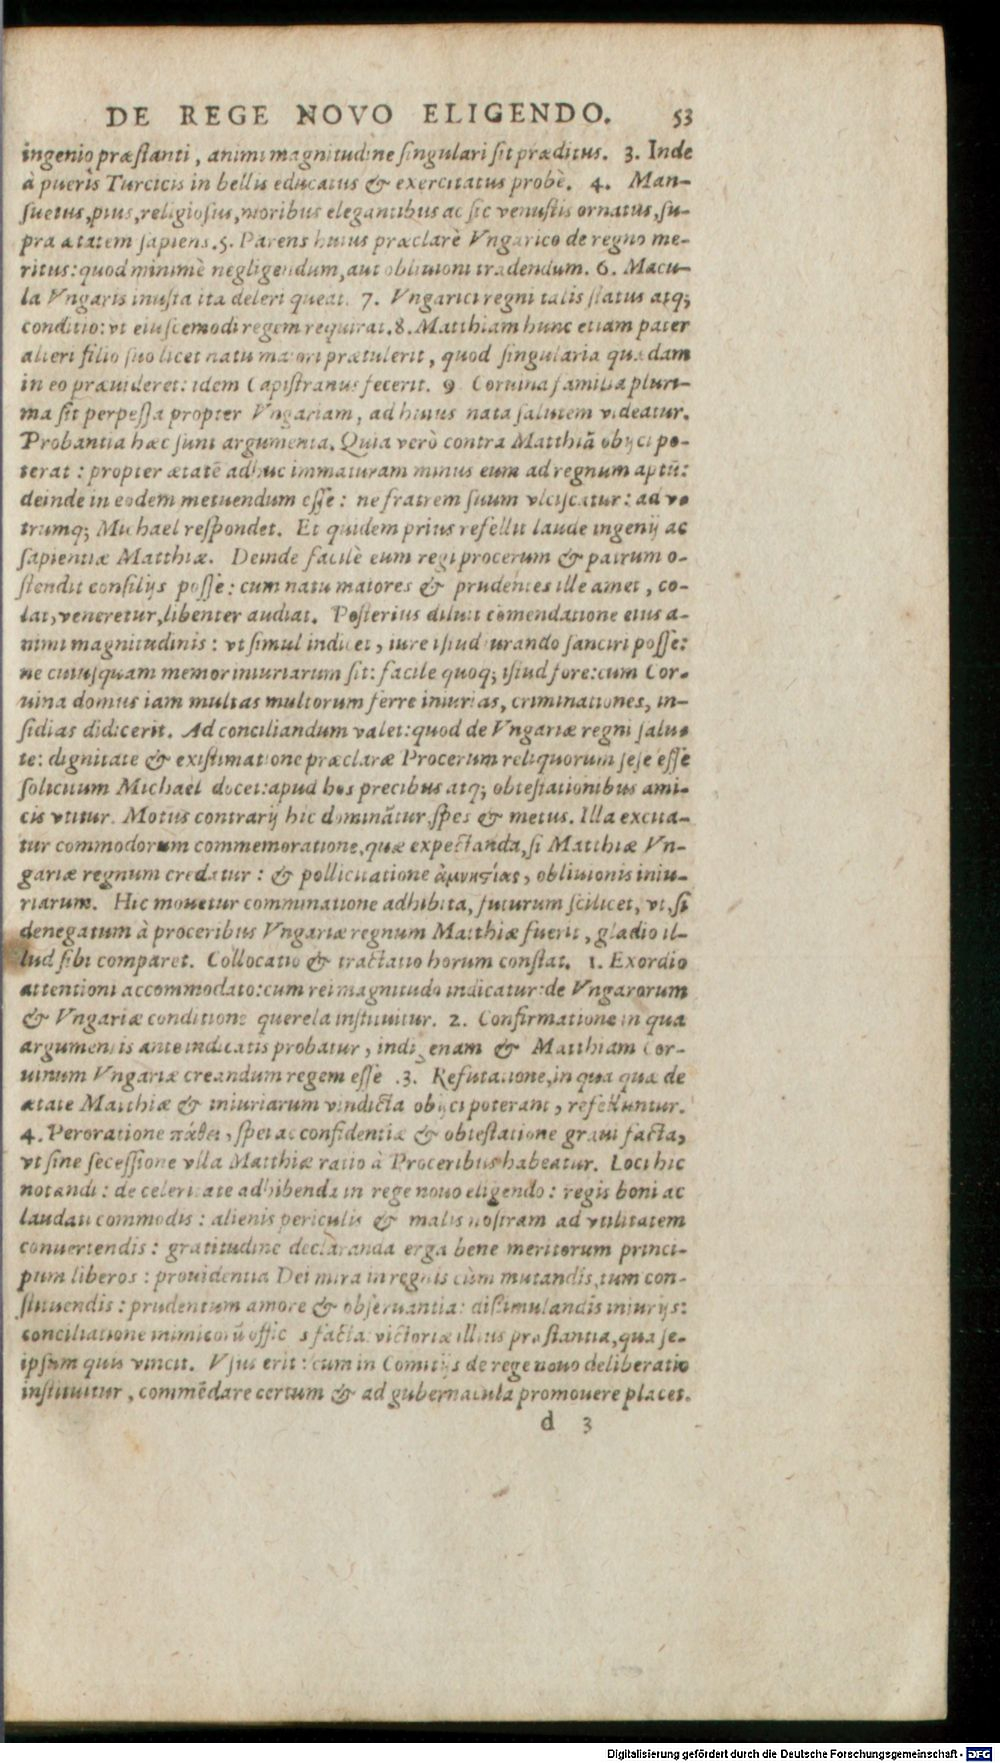 DE REGE NOVO ELIGENDO. 53
ingenio præstanti, animi magnitudine singulari sit præditus. 3. Inde
à pueris Turcicis in bellis educatus & exercitatus probè. 4. Man-
suetus, pius, religiosus, moribus elegantibus ac sic venustis ornatus, su-
pra ætatem sapiens. 5. Parens huius præclarè Vngarico de regno me-
ritus: quod minimè negligendum, aut obliuioni tradendum. 6. Macu-
la Vngaris inusta ita deleri queat. 7. Vngarici regni talis status atq;
conditio: vt eiuscemodi regem requirat. 8. Matthiam hunc etiam pater
alteri filio suo licet natu maiori prætulerit, quod singularia quædam
in eo præuideret: idem Capistranus fecerit. 9. Coruina familia pluri-
ma sit perpessa propter Vngariam, ad huius nata salutem videatur.
Probantia hæc sunt argumenta. Quia verò contra Matthiã obijci po-
terat: propter ætatẽ adhuc immaturam minus eum ad regnum aptũ:
deinde in eodem metuendum esse: ne fratrem suum vlciscatur: ad v-
trumq; Michael respondet. Et quidem prius refellit laude ingenij ac
sapientiæ Matthiæ. Deinde facilè eum regi procerum & patrum o-
stendit consilijs posse: cum natu maiores & prudentes ille amet, co-
lat, veneretur, libenter audiat. Posterius diluit cõmendatione eius a-
nimi magnitudinis: vt simul indicet, iure istud iurando sanciri posse:
ne cuiusquam memor iniuriarum sit: facile quoq; istud fore: cum Cor-
uina domus iam multas multorum ferre iniurias, criminationes, in-
sidias didicerit. Ad conciliandum valet: quod de Vngariæ regni salu-
te: dignitate & existimatione præclaræ Procerum reliquorum sese esse
solicitum Michael docet: apud hos precibus atq; obtestationibus ami-
cis vtitur. Motus contrarij hic dominãtur, spes & metus. Illa excita-
tur commodorum commemoratione, quæ expectanda, si Matthiæ Vn-
gariæ regnum credatur: & pollicitatione ἀμνηστίας, obliuionis iniu-
riarum. Hic mouetur comminatione adhibita, futurum scilicet, vt, si
denegatum à proceribus Vngariæ regnum Matthiæ fuerit, gladio il-
lud sibi comparet. Collocatio & tractatio horum constat. 1. Exordio
attentioni accommodato: cum rei magnitudo indicatur: de Vngarorum
& Vngariæ conditione querela instituitur. 2. Confirmatione in qua
argumentis ante indicatis probatur, indigenam & Matthiam Cor-
uinum Vngariæ creandum regem esse .3. Refutatione, in qua quæ de
ætate Matthiæ & iniuriarum vindicta obijci poterant, refelluntur.
4. Peroratione πάθει, spei ac confidentiæ & obtestatione graui facta,
vt sine secessione vlla Matthiæ ratio à Proceribus habeatur. Loci hic
notandi: de celeritate adhibenda in rege nouo eligendo: regis boni ac
laudati commodis: alienis periculis & malis nostram ad vtilitatem
conuertendis: gratitudine declaranda erga bene meritorum princi-
pum liberos: prouidentia Dei mira in regnis cùm mutandis, tum con-
stituendis: prudentum amore & obseruantia: dissimulandis iniurijs:
conciliatione inimicorũ officijs facta: victoriæ illius præstantia, qua se-
ipsum quis vincit. Vsus erit: cum in Comitijs de rege nouo deliberatio
instituitur, commẽdare certum & ad gubernacula promouere placet.
d 3
Digitalisierung gefördert durch die Deutsche Forschungsgemeinschaft - DFG